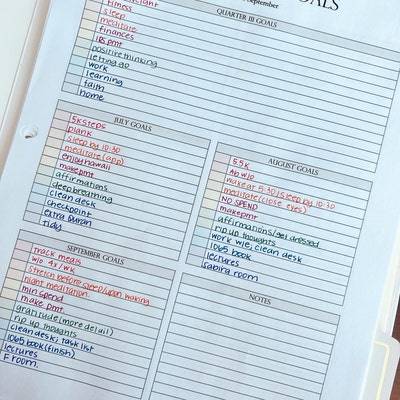 GOALS
September
QUARTER III GOALS
fitness
sleep
meditate
finances
IRS pmt
positive thinking
letting go
work
learning
faith
home
JULY GOALS
5K steps
plank
sleep by 10:30
meditate (app)
enjoy hawaii
make pmt
affirmations
deep breathing
clean desk
checkpoint
extra Quran
tidy
AUGUST GOALS
5.5K
Ab w/o
wake at 5:30/sleep by 10:30
meditate (close eyes)
NO SPEND
make pmt
affirmations/get dressed
rip up thoughts
work w/e, clean desk
1065 book
lectures
Sabira room
SEPTEMBER GOALS
track meals
w/o 4x/wk
stretch before sleep/upon waking
night meditation
min spend
make pmt.
gratitude (more detail)
rip up thoughts
clean desk, task list
1065 book (finish)
lectures
F room.
NOTES